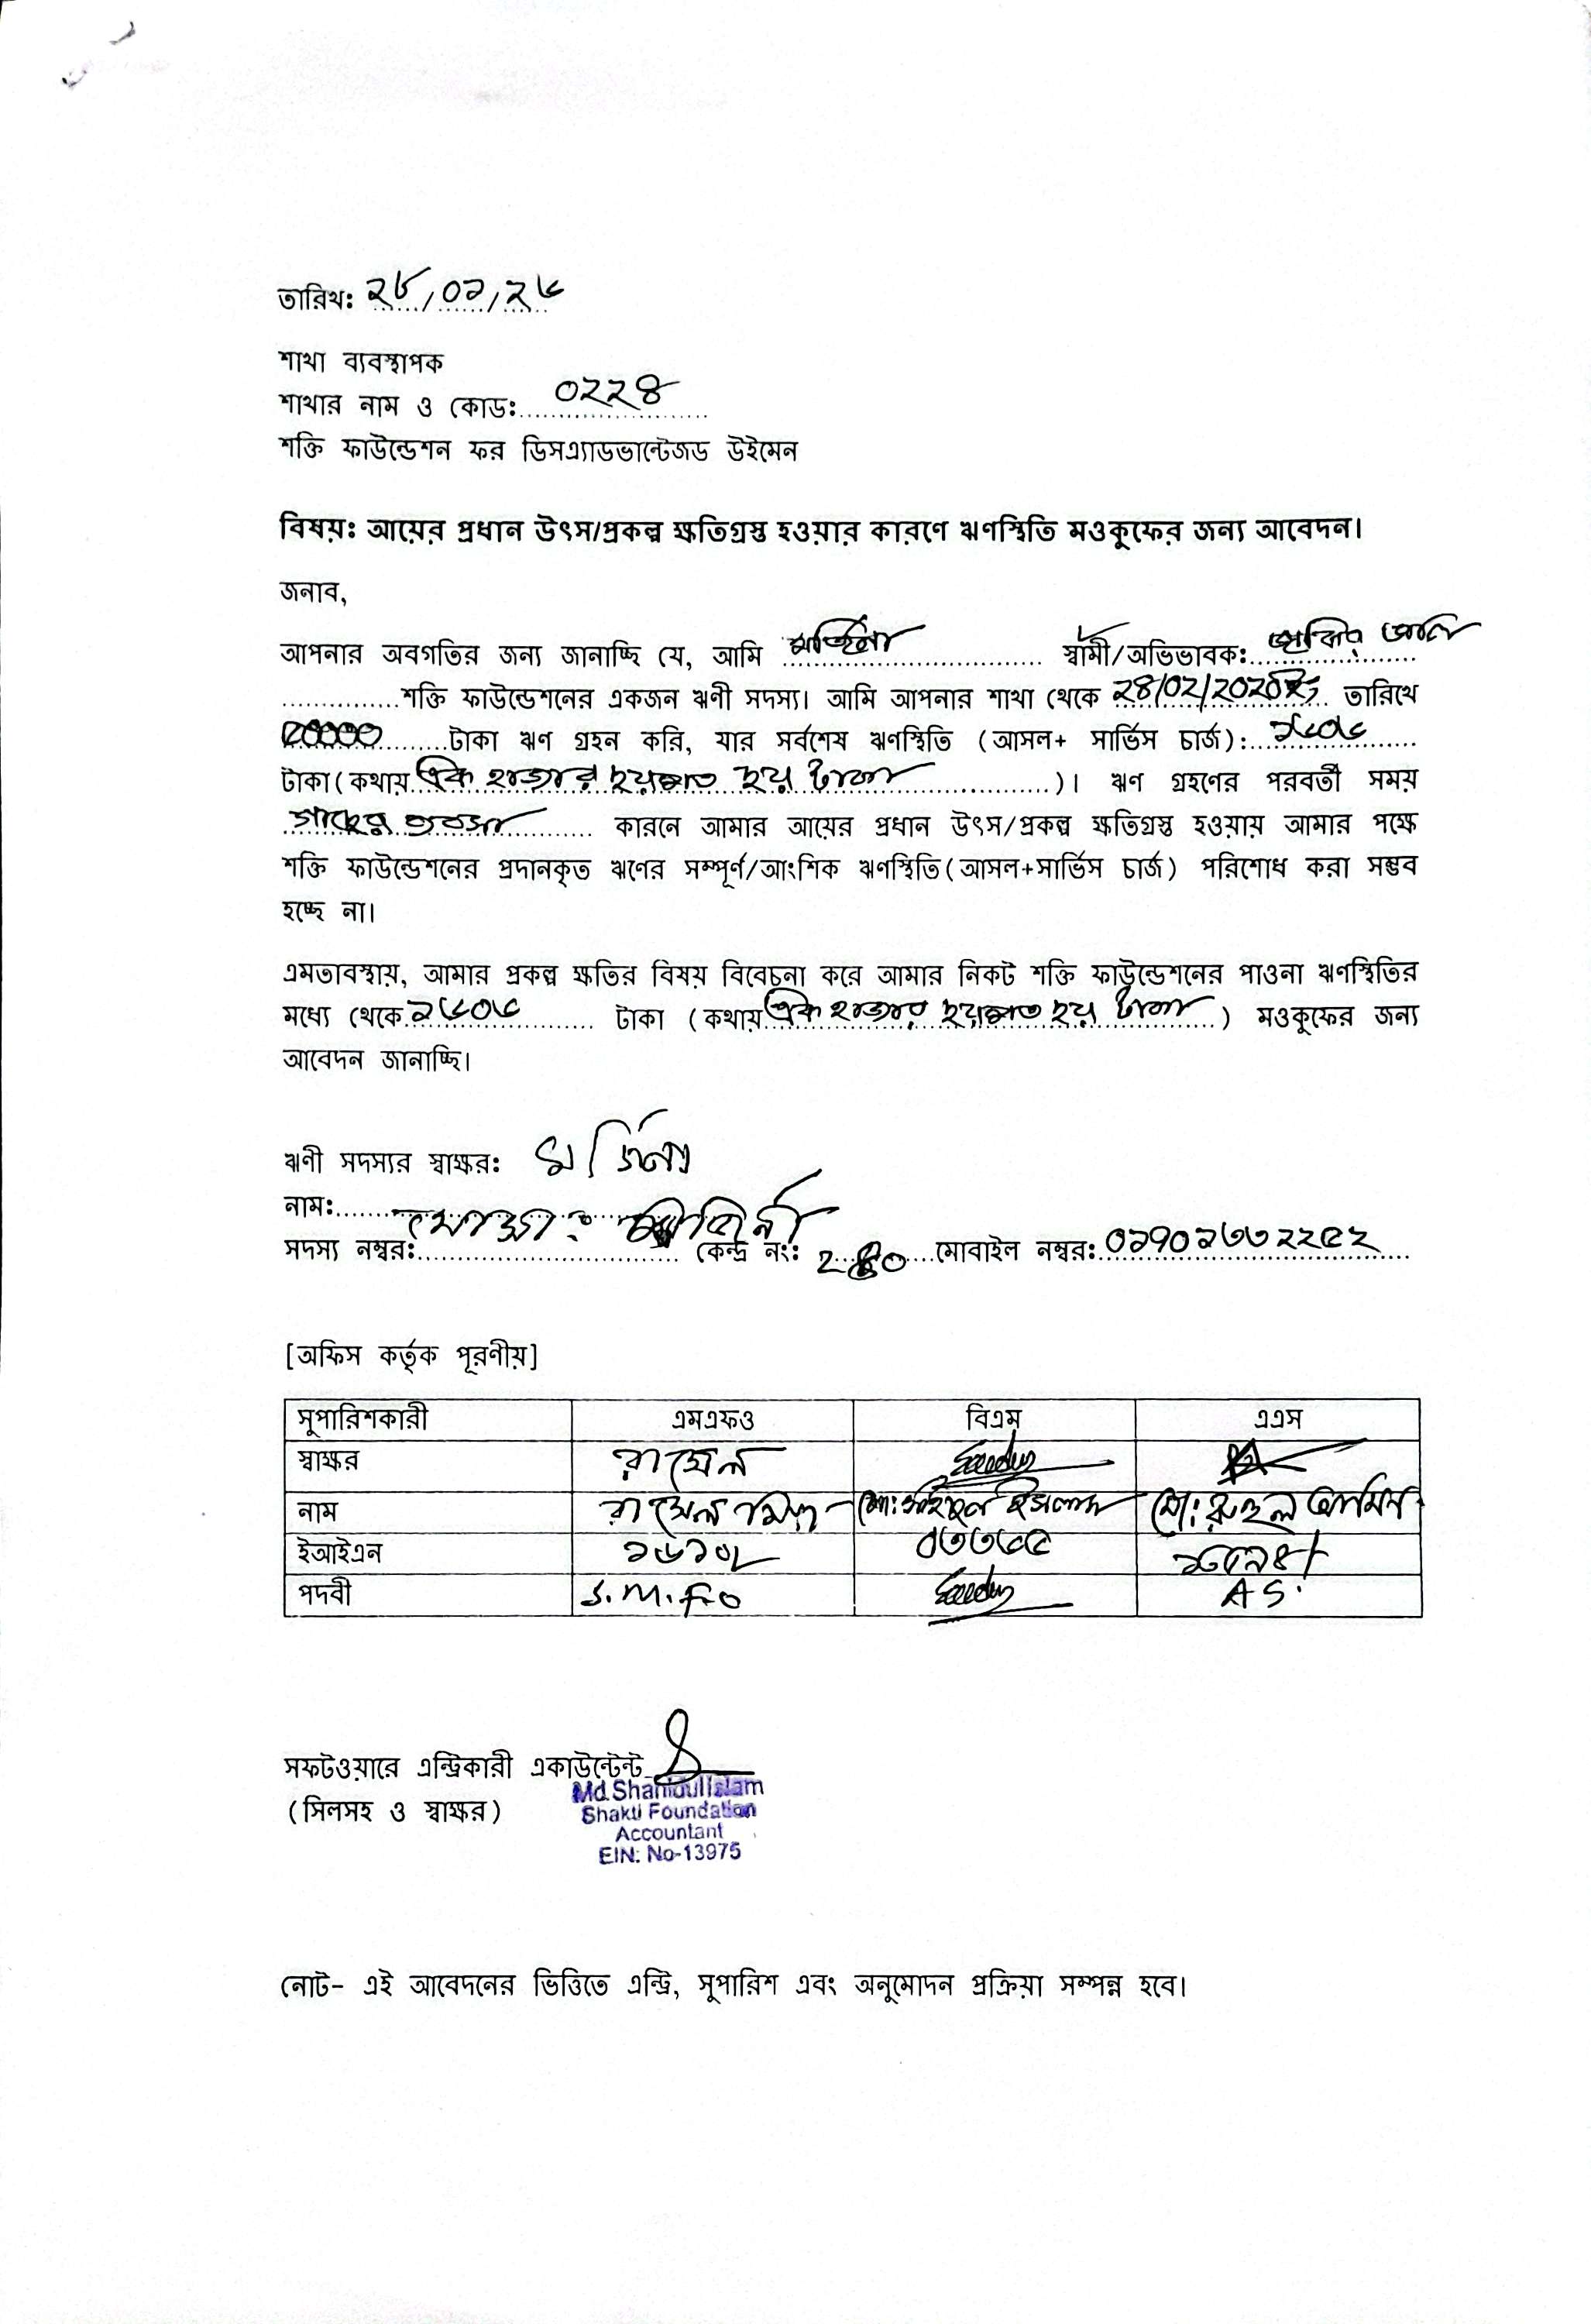 তারিখ: ২৮/০১/২৬
শাখা ব্যবস্থাপক
শাখার নাম ও কোড: ০২২৪
শক্তি ফাউন্ডেশন ফর ডিসএ্যাডভান্টেজড উইমেন
বিষয়: আয়ের প্রধান উৎস/প্রকল্প ক্ষতিগ্রস্ত হওয়ার কারণে ঋণস্থিতি মওকুফের জন্য আবেদন।
জনাব,
আপনার অবগতির জন্য জানাচ্ছি যে, আমি মর্জিনা স্বামী/অভিভাবক: আলি
শক্তি ফাউন্ডেশনের একজন ঋণী সদস্য। আমি আপনার শাখা থেকে তারিখে
টাকা ঋণ গ্রহন করি, যার সর্বশেষ ঋণস্থিতি (আসল+ সার্ভিস চার্জ): ১৬০৬
টাকা(কথায় এক হাজার ছয়শত ছয় টাকা)। ঋণ গ্রহণের পরবর্তী সময়
কারনে আমার আয়ের প্রধান উৎস/প্রকল্প ক্ষতিগ্রস্ত হওয়ায় আমার পক্ষে
শক্তি ফাউন্ডেশনের প্রদানকৃত ঋণের সম্পূর্ণ/আংশিক ঋণস্থিতি(আসল+সার্ভিস চার্জ) পরিশোধ করা সম্ভব
হচ্ছে না।
এমতাবস্থায়, আমার প্রকল্প ক্ষতির বিষয় বিবেচনা করে আমার নিকট শক্তি ফাউন্ডেশনের পাওনা ঋণস্থিতির
মধ্যে থেকে ১৬০৬ টাকা (কথায় এক হাজার ছয়শত ছয় টাকা) মওকুফের জন্য
আবেদন জানাচ্ছি।
ঋণী সদস্যর স্বাক্ষর: মর্জিনা
নাম: মোছা: মর্জিনা
সদস্য নম্বর: কেন্দ্র নং: মোবাইল নম্বর: ০১৭০১৬৩২২৫২
[অফিস কর্তৃক পূরণীয়]
সুপারিশকারী এমএফও বিএম এএস
স্বাক্ষর রাসেল
নাম রাসেল মিয়া মো: সাইদুল ইসলাম মো: রুহুল আমিন
ইআইএন
পদবী S.M.F.O A S.
সফটওয়ারে এন্ট্রিকারী একাউন্টেন্ট
(সিলসহ ও স্বাক্ষর)
Md. Shahidul Islam
Shakti Foundation
Accountant
EIN: No-13975
নোট- এই আবেদনের ভিত্তিতে এন্ট্রি, সুপারিশ এবং অনুমোদন প্রক্রিয়া সম্পন্ন হবে।